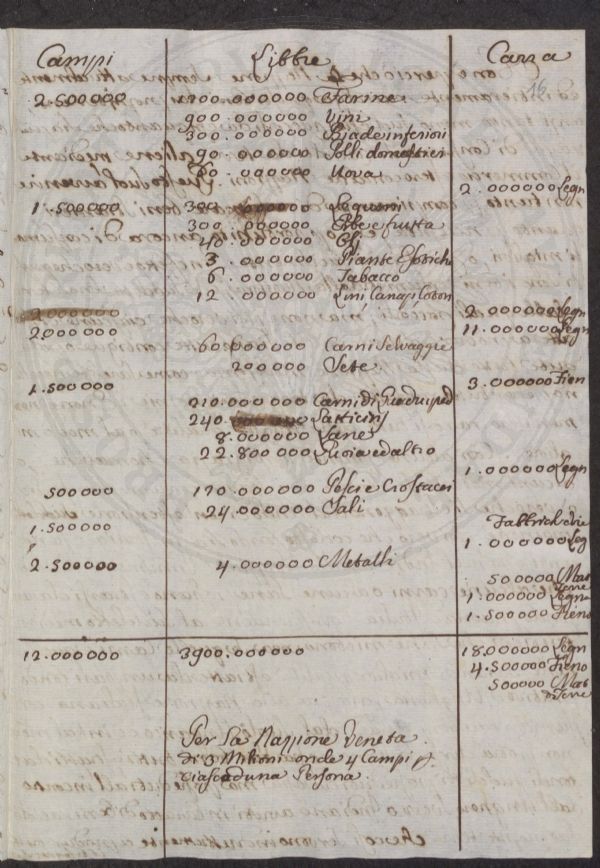 Campi Libbre Carra
16
2.500000 000.000000 Farine
900.000000 Vini
300.000000 Biade inferiori
90.000000 Polli domestici
60.000000 Uova
2.000000 Legn
1.500000 300.000000 Legumi
300.000000 Erbe e frutta
40.000000 Olj
3.000000 Piante Esotich
6.000000 Tabacco
12.000000 Lini Canapi Coton
2000000 2.000000 Legn
2000000 11.000000 Legn
60.000000 Carni Selvaggie
200000 Sete
1.500000 3.000000 Fien
210.000000 Carni di Quadruped
240.000000 Latticinj
8.000000 Lane
22.800000 Cuoia ed altro
1.000000 Legn
500000 120.000000 Pescie Crostacei
24.000000 Sali
1.500000 Fabbriche
1.000000 Leg
2.500000 4.000000 Metalli
500000 Mat
1.000000 Legna
1.500000 Fieno
12.000000 3900.000000 18.000000 Legn
4.500000 Fieno
500000 Mat
Per La Nazione Veneta
di 3 Milioni onde 4 Campi p.
ciascaduna Persona.